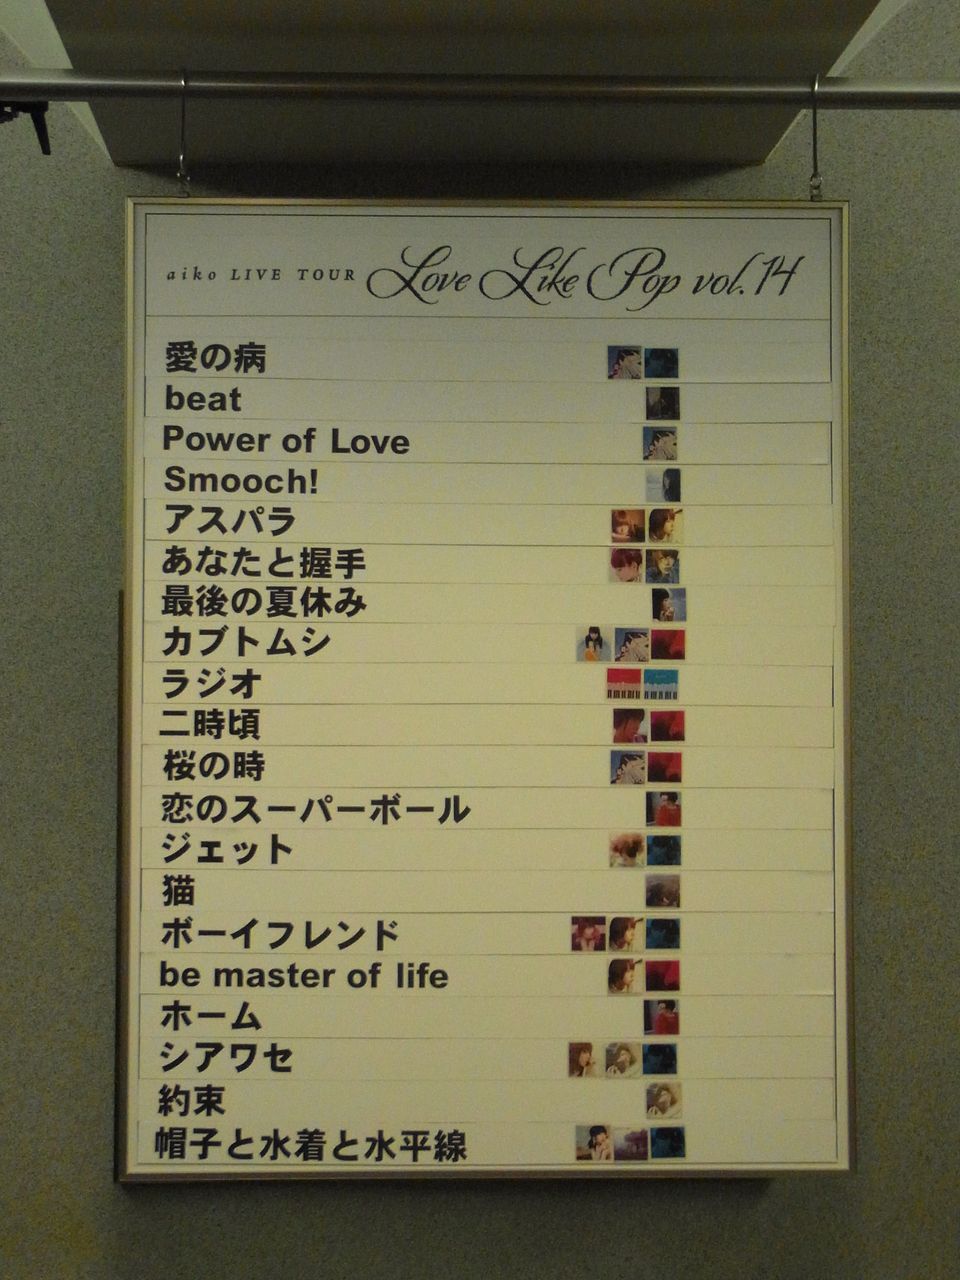 aiko LIVE TOUR Love Like Pop vol.14
愛の病
beat
Power of Love
Smooch!
アスパラ
あなたと握手
最後の夏休み
カブトムシ
ラジオ
二時頃
桜の時
恋のスーパーボール
ジェット
猫
ボーイフレンド
be master of life
ホーム
シアワセ
約束
帽子と水着と水平線